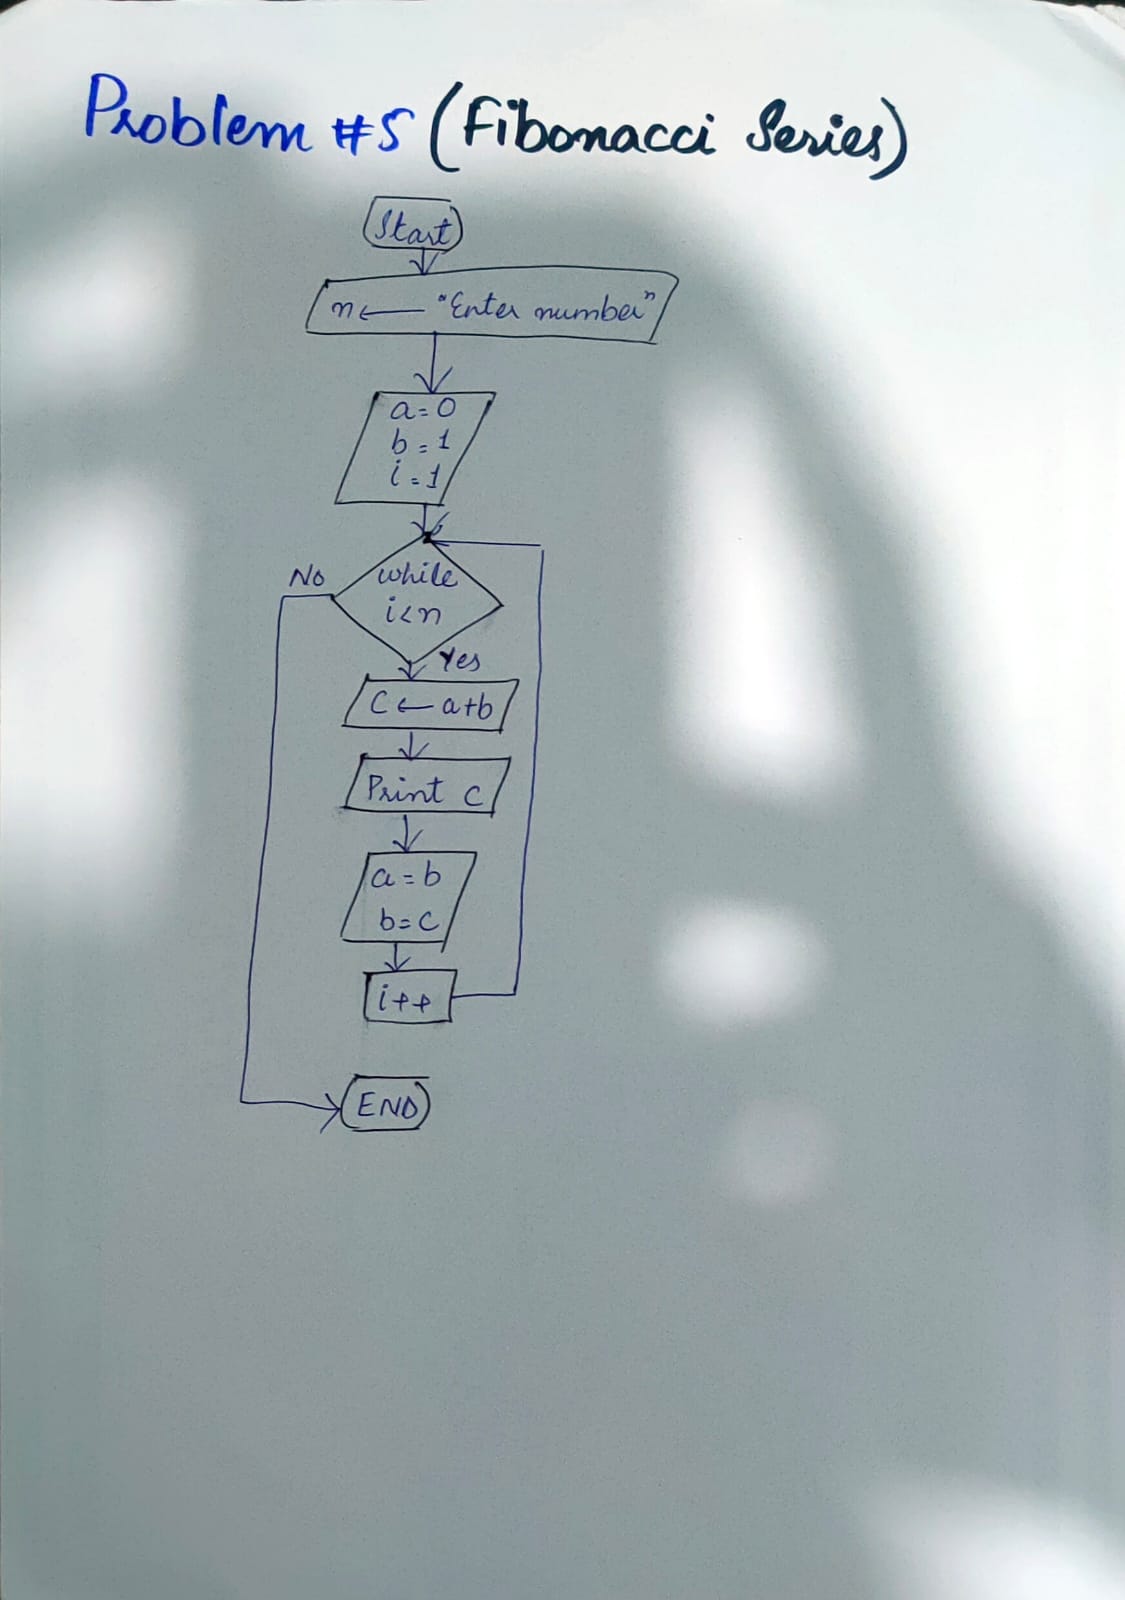 Problem #5 (Fibonacci Series)
Start
n ← "Enter number"
a=0
b=1
i=1
while
i<n
No
Yes
C ← a+b
Print c
a=b
b=c
i++
END